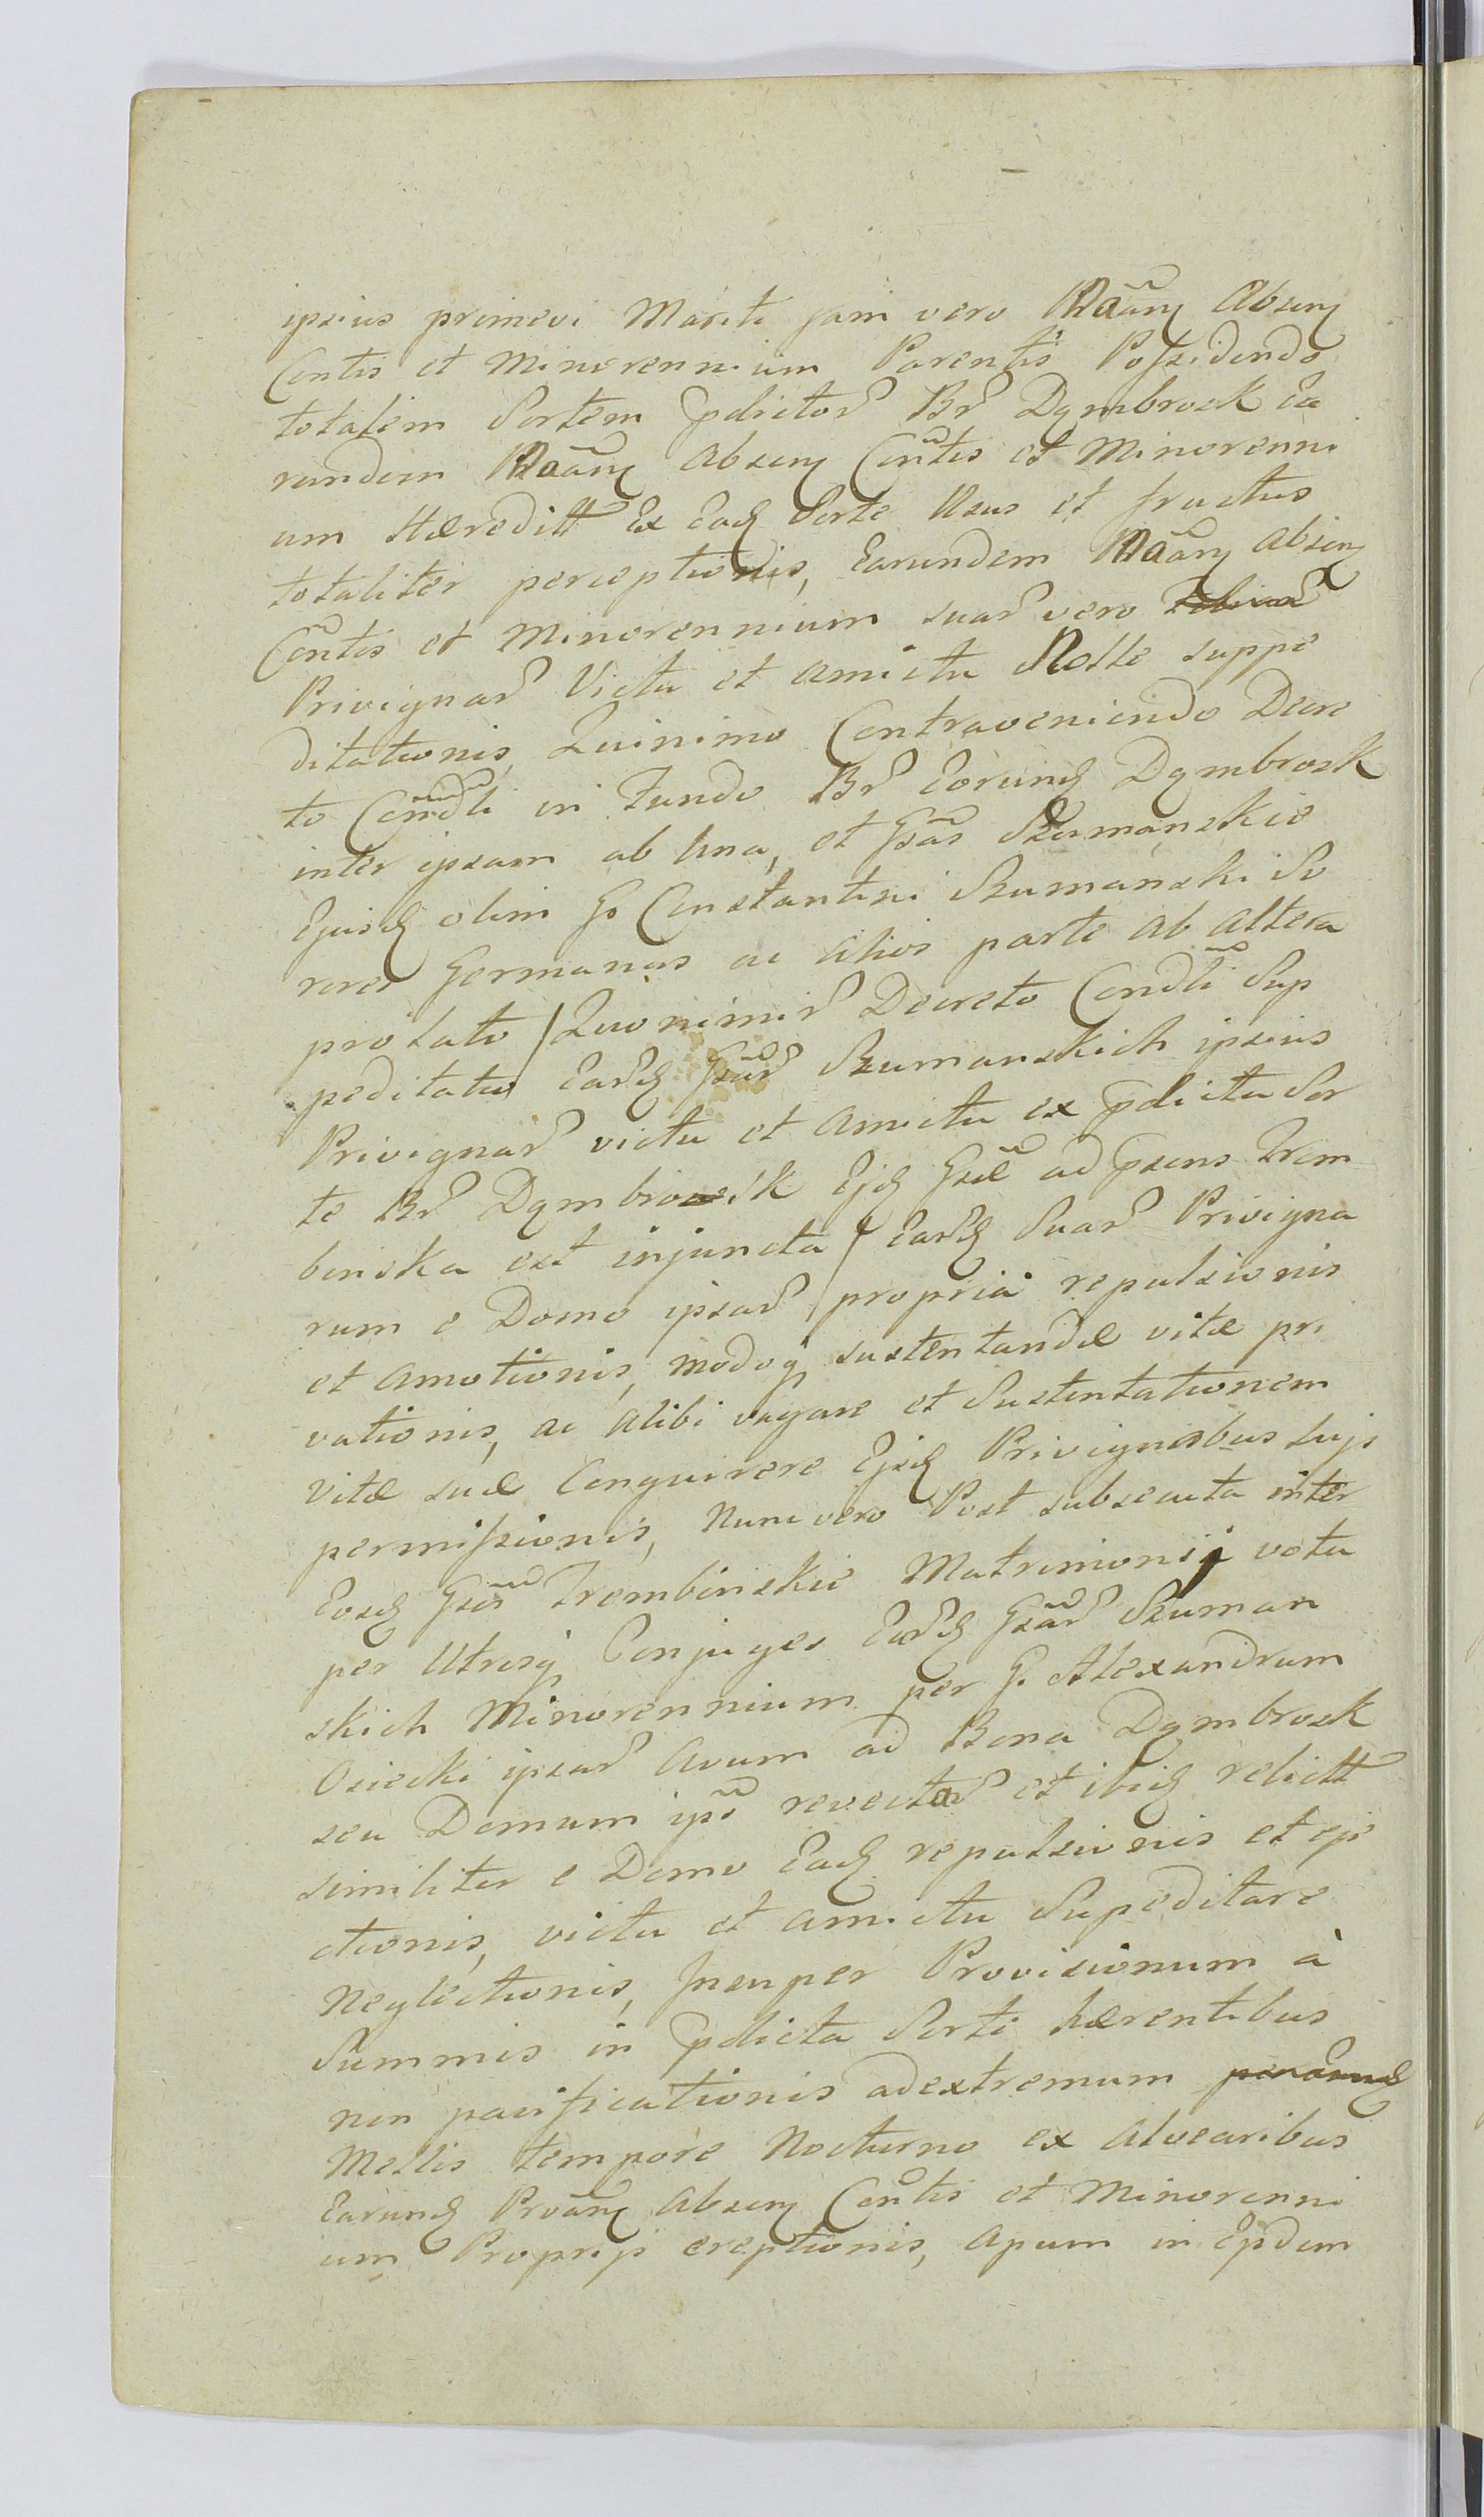 ipsius primevi Mariti jam vero Absenq
Centis et Minorennium Parentis Possidendo
totalem Sortem pdictor Br Dąmbrosk Ea
rundem Absenq Cẽntis et Minorenni
um Hæreditt Ex Eadq Sorte Usus et fructus
totaliter perceptionis, Earundem Absenq
Cẽntis et Minorennium suar vero
Privignar Victu et amictu Nolle suppe
ditationis, Quinimo Contraveniendo Decre
to Cõndli in Fundo Br Eorundq Dąmbrosk
inter ipsam ab una, et Gsas Szumanskie
Ejusdq olim G Constantini Szumanski So
rores Germanas ac alios parte ab altera
prolato / Quonimir Decreto Condli Sup
peditatio Eardq Gsar Szumanskich ipsius
Privignar victu et amictu ex pdicta Sor
te Br Dąmbrosk Ejdq Gsæ ad psens Trem
binska est injuncta / Eardq Suar Privigna
rum e Domo ipsar propria repulsionis
et amotionis, modoq sustentandæ vitæ pri
vationis, ac alibi vagare et Sustentationem
vitæ suæ Conquirere Ejsdq Privignabus suis
permissionis, Nunc vero Post subsecuta inter
Eosdq Gsos Trembinskie Matrimonij vota
per Utrosq Conjuges Eardq Gsar Szuman
skich Minorennium per G. Alexandrum
Osiecki ipsar Avum ad Bona Dąmbrosk
seu Domum ips revectar et ibidq relictt
similiter e Domo Eadq repulsionis et eje
ctionis, victu et amictu Supeditare
Neglectionis, Insuper Provisionum à
Summis in pdicta Sorte hærentibus
non pacificationis adextremum
Mellis tempore Nocturno ex Alvearibus
Earundq Absenq Centis et Minorenni
um Proprijs ereptionis, Apum in Eisdem